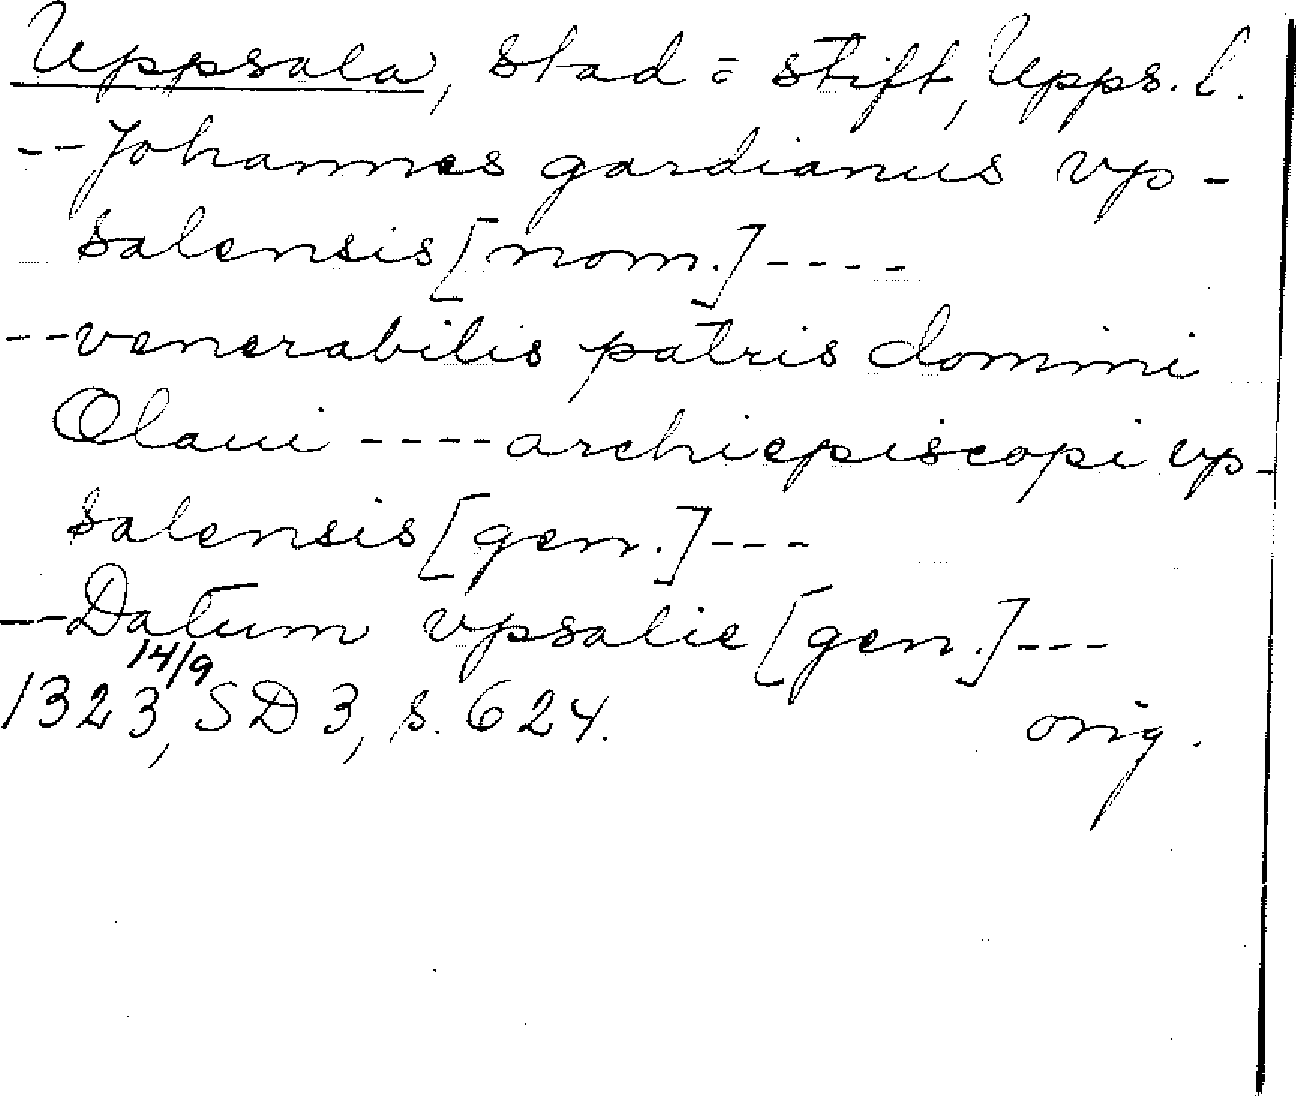 Uppsala, stad = stift, Upps. l.
-- Johannes gardianus vp-
salensis [nom.] ----
-- venerabilis patris domini
Olaui ---- archiepiscopi vp-
salensis [gen.] ---
-- Datum vpsalie [gen.] ---
14/9
1323, SD 3, s. 624. orig.